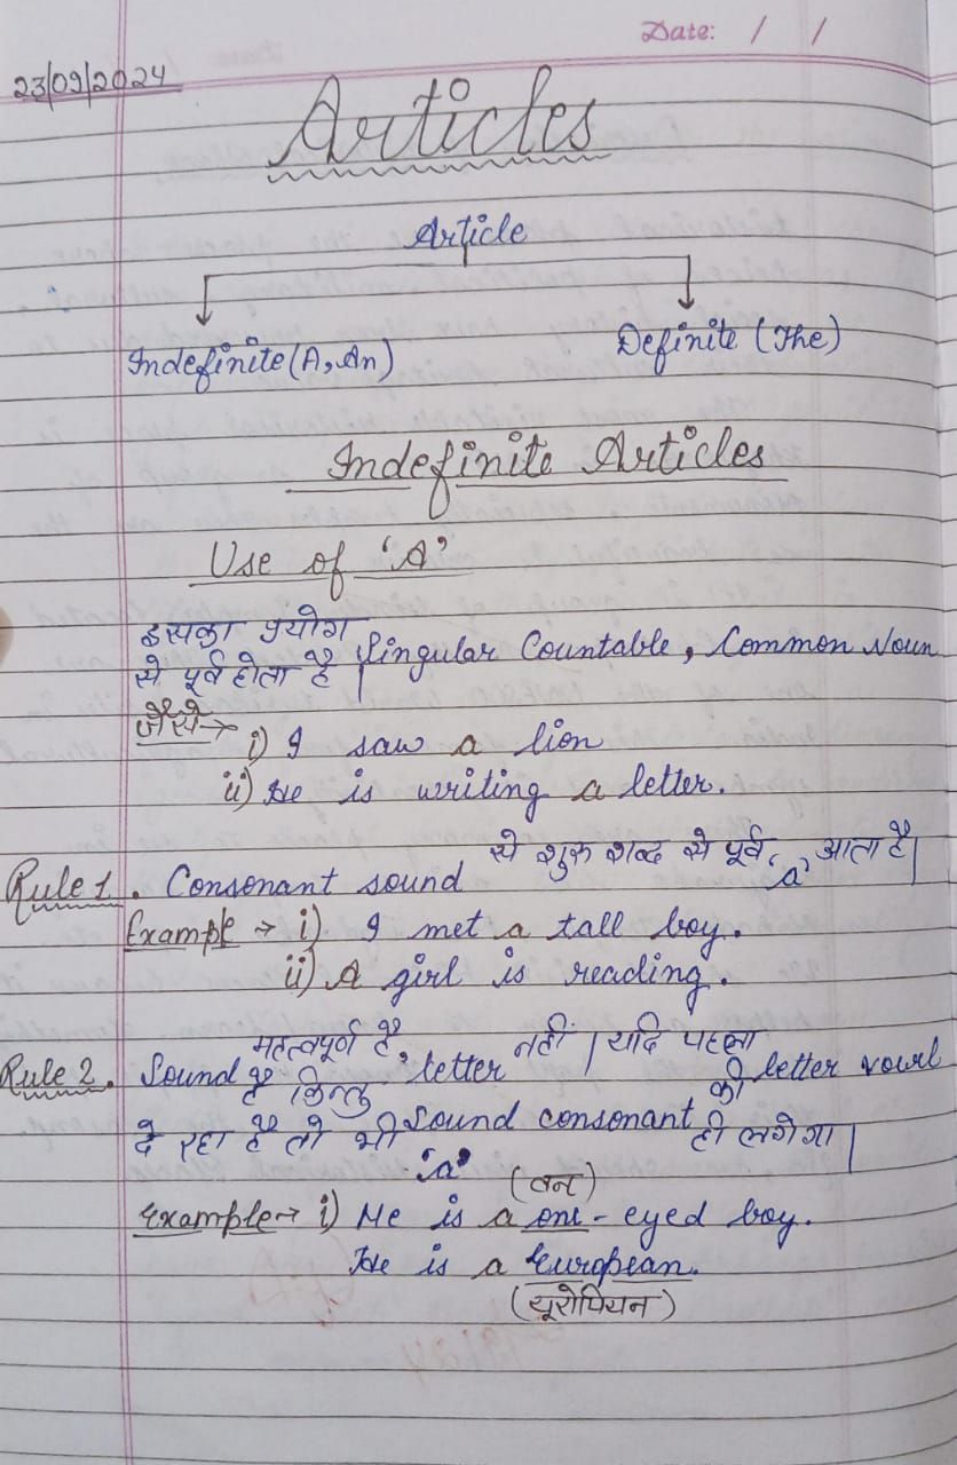 Date: / /
23/09/2024
Articles
Article
Indefinite (A, An)
Definite (The)
Indefinite Articles
Use of 'A'
इसका प्रयोग Singular Countable, Common Noun
से पूर्व होता है।
जैसे→ i) I saw a lion
ii) He is writing a letter.
Rule 1. Consonant sound से शुरू शब्द से पूर्व 'a' आता है।
Example → i) I met a tall boy.
ii) A girl is reading.
Rule 2. Sound महत्वपूर्ण है, letter नहीं। यदि पहला letter vowel
है किन्तु की
sound consonant दे रहा है तो भी 'a' ही लगेगा।
(वन)
Example→ i) He is a one-eyed boy.
He is a European.
(यूरोपियन)